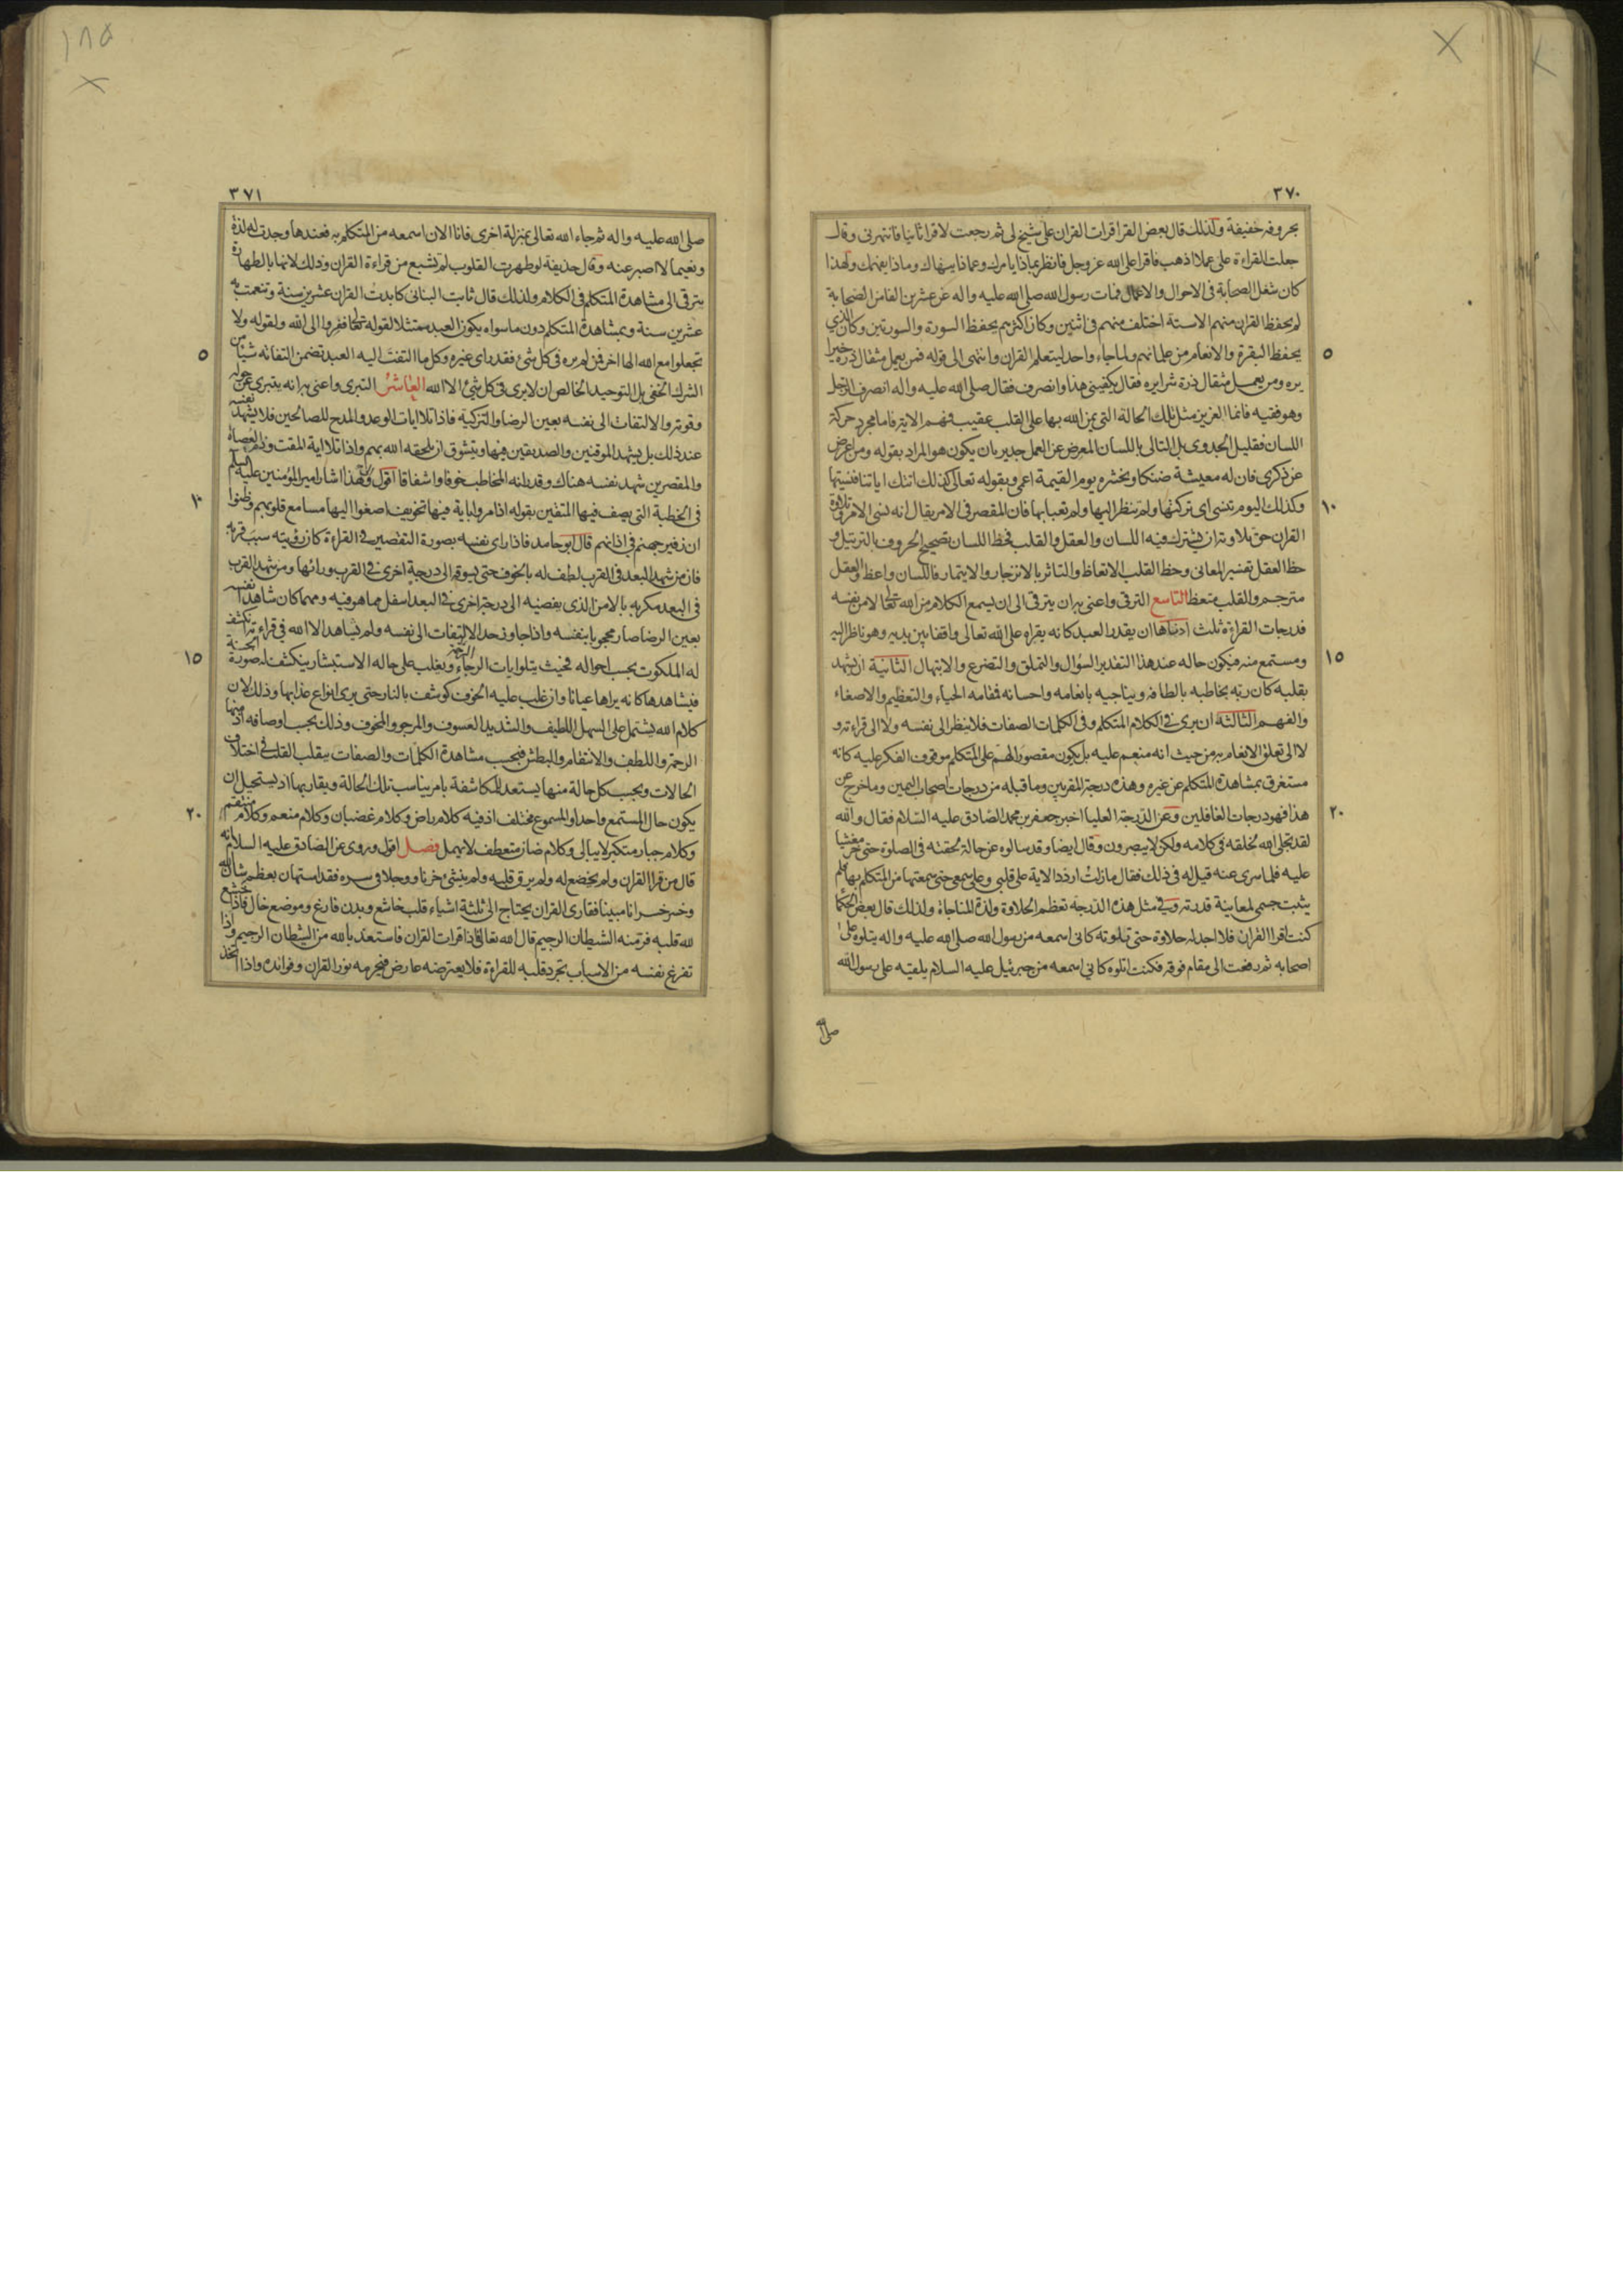 ٣٧٠
بحروفه خفيفة وكذلك قال بعض القرا قرات القران على شيخ لى ثم رجعت لاقرا ثانيا فانتهرنى وقال
جعلت القراءة على عملا اذهب فاقرا على الله عز وجل فانظر بماذا يامرك وعماذا ينهاك وماذا يفهمك ولهذا
كان شغل الصحابة فى الاحوال والاعمال فمات رسول الله صلى الله عليه واله عن عشرين الفا من الصحابة
لم يحفظ القران منهم الا ستة اختلف منهم فى اثنين وكان اكثرهم يحفظ السورة والسورتين وكان الذي
٥
يحفظ البقرة والانعام من علمائهم ولما جاء واحد ليتعلم القران وانتهى الى قوله فمن يعمل مثقال ذرة خيرا
يره ومن يعمل مثقال ذرة شرا يره فقال يكفينى هذا وانصرف فقال صلى الله عليه واله انصرف الرجل
وهو فقيه فانما العزيز مثل تلك الحالة التى يمن الله بها على القلب عقيب فهم الاية فاما مجرد حركة
اللسان فقليل الجدوى بل التالى باللسان المعرض عن العمل جدير بان يكون هو المراد بقوله ومن اعرض
عن ذكرى فان له معيشة ضنكا ونحشره يوم القيمة اعمى وبقوله تعالى كذلك اتتك اياتنا فنسيتها
١٠
وكذلك اليوم تنسى اى تركتها ولم تنظر اليها ولم تعبا بها فان المقصر فى الامر يقال انه نسى الامر وتلاوة
القران حق تلاوته ان يشترك فيه اللسان والعقل والقلب فحظ اللسان تصحيح الحروف بالترتيل و
حظ العقل تفسير المعانى وحظ القلب الاتعاظ والتاثر بالانزجار والايتمار فاللسان واعظ والعقل
مترجم والقلب متعظ التاسع الترقى واعنى به ان يترقى الى ان يسمع الكلام من الله تعالى لا من نفسه
فدرجات القراءة ثلث ادناها ان يقدر العبد كانه يقراه على الله تعالى واقفا بين يديه وهو ناظر اليه
١٥
ومستمع منه فيكون حاله عند هذا التقدير السؤال والتملق والتضرع والابتهال الثانية ان يشهد
بقلبه كان ربه يخاطبه بالطافه ويناجيه بانعامه واحسانه فمقامه الحياء والتعظيم والاصغاء
والفهم الثالثة ان يرى فى الكلام المتكلم وفى الكلمات الصفات فلا ينظر الى نفسه ولا الى قراءته و
لا الى تعلق الانعام به من حيث انه منعم عليه بل يكون مقصور الهم على المتكلم موقوف الفكر عليه كانه
مستغرق بمشاهدة المتكلم عن غيره وهذه درجة المقربين وما قبله من درجات اصحاب اليمين وما خرج عن
٢٠
هذا فهو درجات الغافلين وعن الدرجة العليا اخبر جعفر بن محمد الصادق عليه السلام فقال والله
لقد تجلى الله لخلقه فى كلامه ولكن لا يبصرون وقال ايضا وقد سالوه عن حالة لحقته فى الصلوة حتى خر مغشيا
عليه فلما سرى عنه قيل له فى ذلك فقال مازلت اردد الاية على قلبى وعلى سمعى حتى سمعتها من المتكلم بها فلم
يثبت جسمى لمعاينة قدرته وفى مثل هذه الدرجة تعظم الحلاوة ولذة المناجاة ولذلك قال بعض الحكما
كنت اقرا القران فلا اجد له حلاوة حتى تلوته كانى اسمعه من رسول الله صلى الله عليه واله يتلوه على
اصحابه ثم رفعت الى مقام فوقه فكنت اتلوه كانى اسمعه من جبرئيل عليه السلام يلقيه على رسول الله
صلى الله
١٨٥
٣٧١
صلى الله عليه واله ثم جاء الله تعالى بمنزلة اخرى فانا الان اسمعه من المتكلم به فعندها وجدت له لذة
ونعيما لا اصبر عنه وقال حذيفة لو طهرت القلوب لم تشبع من قراءة القران وذلك لانها بالطهارة
يترقى الى مشاهدة المتكلم فى الكلام ولذلك قال ثابت البنانى كابدت القران عشرين سنة وتنعمت به
عشرين سنة وبمشاهدة المتكلم دون ما سواه يكون العبد ممتثلا لقوله تعالى ففروا الى الله ولقوله ولا
٥
تجعلوا مع الله الها اخر فمن لم يره فى كل شئ فقد راى غيره وكل ما التفت اليه العبد تضمن التفاته شيئا من
الشرك الخفى بل التوحيد الخالص ان لا يرى فى كل شئ الا الله العاشر التبرى واعنى به انه يتبرى عن حوله
وقوته والالتفات الى نفسه بعين الرضا والتزكية فاذا تلا ايات الوعد والمدح للصالحين فلا يشهد نفسه
عند ذلك بل يشهد الموقنين والصديقين فيها ويتشوق ان يلحقه الله بهم واذا تلا اية المقت وذم العصاة
والمقصرين شهد نفسه هناك وقدر انه المخاطب خوفا واشفاقا اقول والى هذا اشار امير المؤمنين عليه السلم
١٠
فى الخطبة التى يصف فيها المتقين بقوله اذا مروا باية فيها تخويف اصغوا اليها مسامع قلوبهم وظنوا
ان زفير جهنم فى اذانهم قال ابو حامد فاذا راى نفسه بصورة التقصير فى القراءة كان رؤيته سبب قربه
فان من شهد البعد فى القرب لطف له بالخوف حتى يسوقه الى درجة اخرى فى القرب ورائها ومن شهد القرب
فى البعد مكر به بالامن الذى يفضيه الى درجة اخرى فى البعد اسفل مما هو فيه ومهما كان شاهدا نفسه
بعين الرضا صار محجوبا بنفسه واذا جاوز حد الالتفات الى نفسه ولم يشاهد الا الله فى قراءته تكشف
١٥
له الملكوت بحسب احواله فحيث يتلو ايات الرحمة والرجاء ويغلب على حاله الاستبشار ينكشف له صورة الجنة
فيشاهدها كانه يراها عيانا وان غلب عليه الخوف كوشف بالنار حتى يرى انواع عذابها وذلك لان
كلام الله يشتمل على السهل اللطيف والشديد العسوف والمرجو والمخوف وذلك بحسب اوصافه اذ منها
الرحمة واللطف والانتقام والبطش فبحسب مشاهدة الكلمات والصفات يتقلب القلب فى اختلاف
الحالات وبحسب كل حالة منها يستعد للمكاشفة بامر يناسب تلك الحالة ويقاربها اذ يستحيل ان
٢٠
يكون حال المستمع واحدا والمسموع مختلف اذ فيه كلام راض وكلام غضبان وكلام منعم وكلام منتقم
وكلام جبار متكبر لا يبالى وكلام حنان متعطف لا يهمل فصل اقول وروى عن الصادق عليه السلام انه
قال من قرا القران ولم يخضع له ولم يرق قلبه ولم ينشئ حزنا ووجلا فى سره فقد استهان بعظم شان الله
وخسر خسرانا مبينا فقارى القران يحتاج الى ثلثة اشياء قلب خاشع وبدن فارغ وموضع خال فاذا خشع
لله قلبه فر منه الشيطان الرجيم قال الله تعالى فاذا قرات القران فاستعذ بالله من الشيطان الرجيم واذا
تفرغ نفسه من الاسباب تجرد قلبه للقراءة فلا يعترضه عارض فيحرمه نور القران وفوائده واذا اتخذ